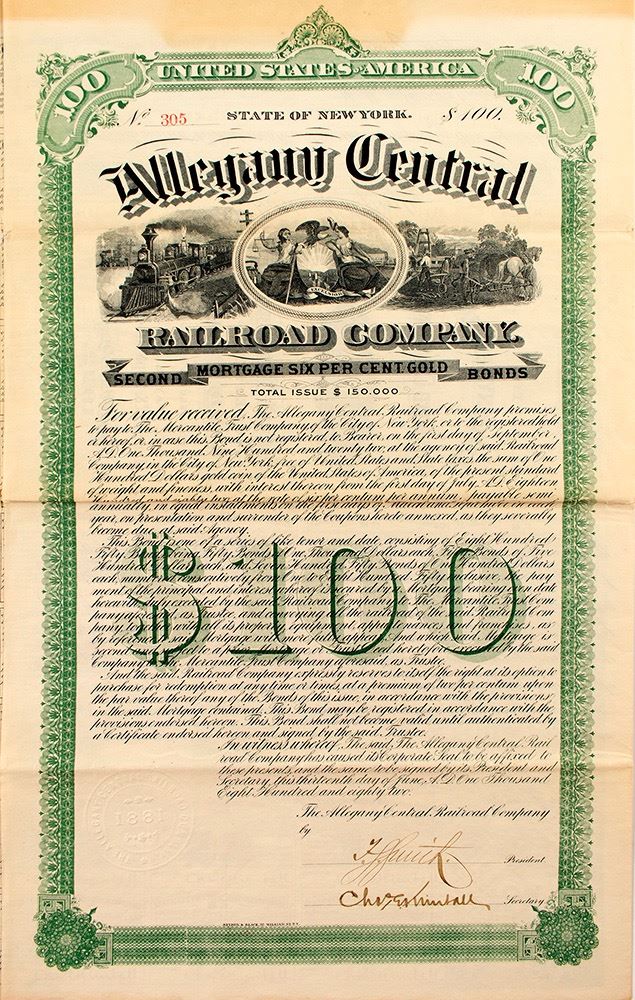 100
UNITED STATES OF AMERICA
100
No. 305
STATE OF NEW YORK.
$100.
Allegany Central
EXCELSIOR
RAILROAD COMPANY.
SECOND MORTGAGE SIX PER CENT. GOLD BONDS
TOTAL ISSUE $ 150.000
For value received, The Allegany Central Railroad Company promises
to pay to The Mercantile Trust Company of the City of New York, or to the registered holder
hereof, or in case this Bond is not registered, to Bearer, on the first day of September
A.D. One Thousand, Nine Hundred and twenty two, at the agency of said Railroad
Company, in the City of New York, free of United States and State taxes, the sum of One
Hundred Dollars gold coin of the United States of America, of the present standard
of weight and fineness, with interest thereon from the first day of July, A.D. Eighteen
at the rate of six per centum per annum, payable semi
annually, in equal installments on the first days of
year, on presentation and surrender of the Coupons hereto annexed, as they severally
become due, at said Agency.
This Bond is one of a series of like tenor and date, consisting of Eight Hundred
Fifty Bonds, Fifty Bonds of One Thousand Dollars each, Bonds of Five
Hundred Dollars each, and Hundred Fifty Bonds of One Hundred Dollars
each, numbered consecutively from One to Eight Hundred Fifty inclusive, the pay
ment of the principal and interest hereof secured by a Mortgage bearing even date
herewith, executed by the said Railroad Company to The Mercantile Trust Com
pany, as
with all its property, appurtenances and franchises, as
by
second Mortgage heretofore executed by the said
Company to The Mercantile Trust Company aforesaid, as Trustee.
And the said Railroad Company expressly reserves to itself the right at its option to
purchase for redemption at any time or times, at a premium of two per centum upon
the par value thereof any of the Bonds of this issue, in accordance with the provisions
in the said Mortgage contained. This Bond may be registered in accordance with the
provisions endorsed hereon. This Bond shall not become valid until authenticated by
a Certificate endorsed hereon and signed by the said Trustee.
In witness whereof, The said, The Allegany Central Rail
road Company has caused its Corporate Seal to be affixed to
these presents, and the same to be signed by its President and
Secretary, this thirteenth day of June, A.D. One Thousand
Eight Hundred and eighty two.
The Allegany Central Railroad Company
by
President.
Secretary.
$100
1881